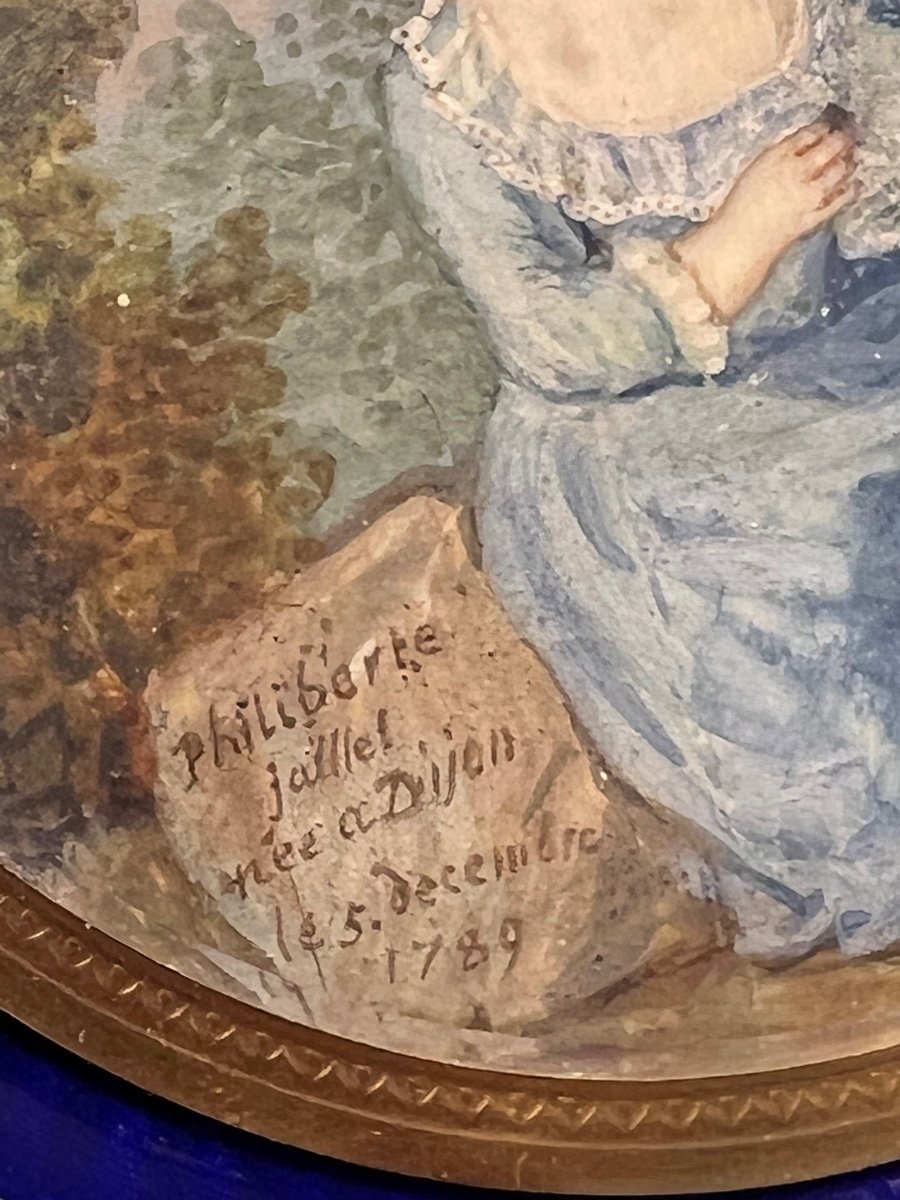 Philiberte
jaillet
née a Dijon
le 5. Decembre
1789